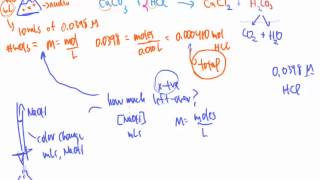 CaCO3 + 2HCl → CaCl2 + H2CO3
CO2 + H2O
10 mLs of 0.0398 M
# mols = M = mol/L
0.0398 = moles/0.010L = 0.000410 mol HCl
total
0.0398 M
HCl
how much left-over?
[NaOH]
mLs
M = moles/L
NaOH
color change
mLs, NaOH